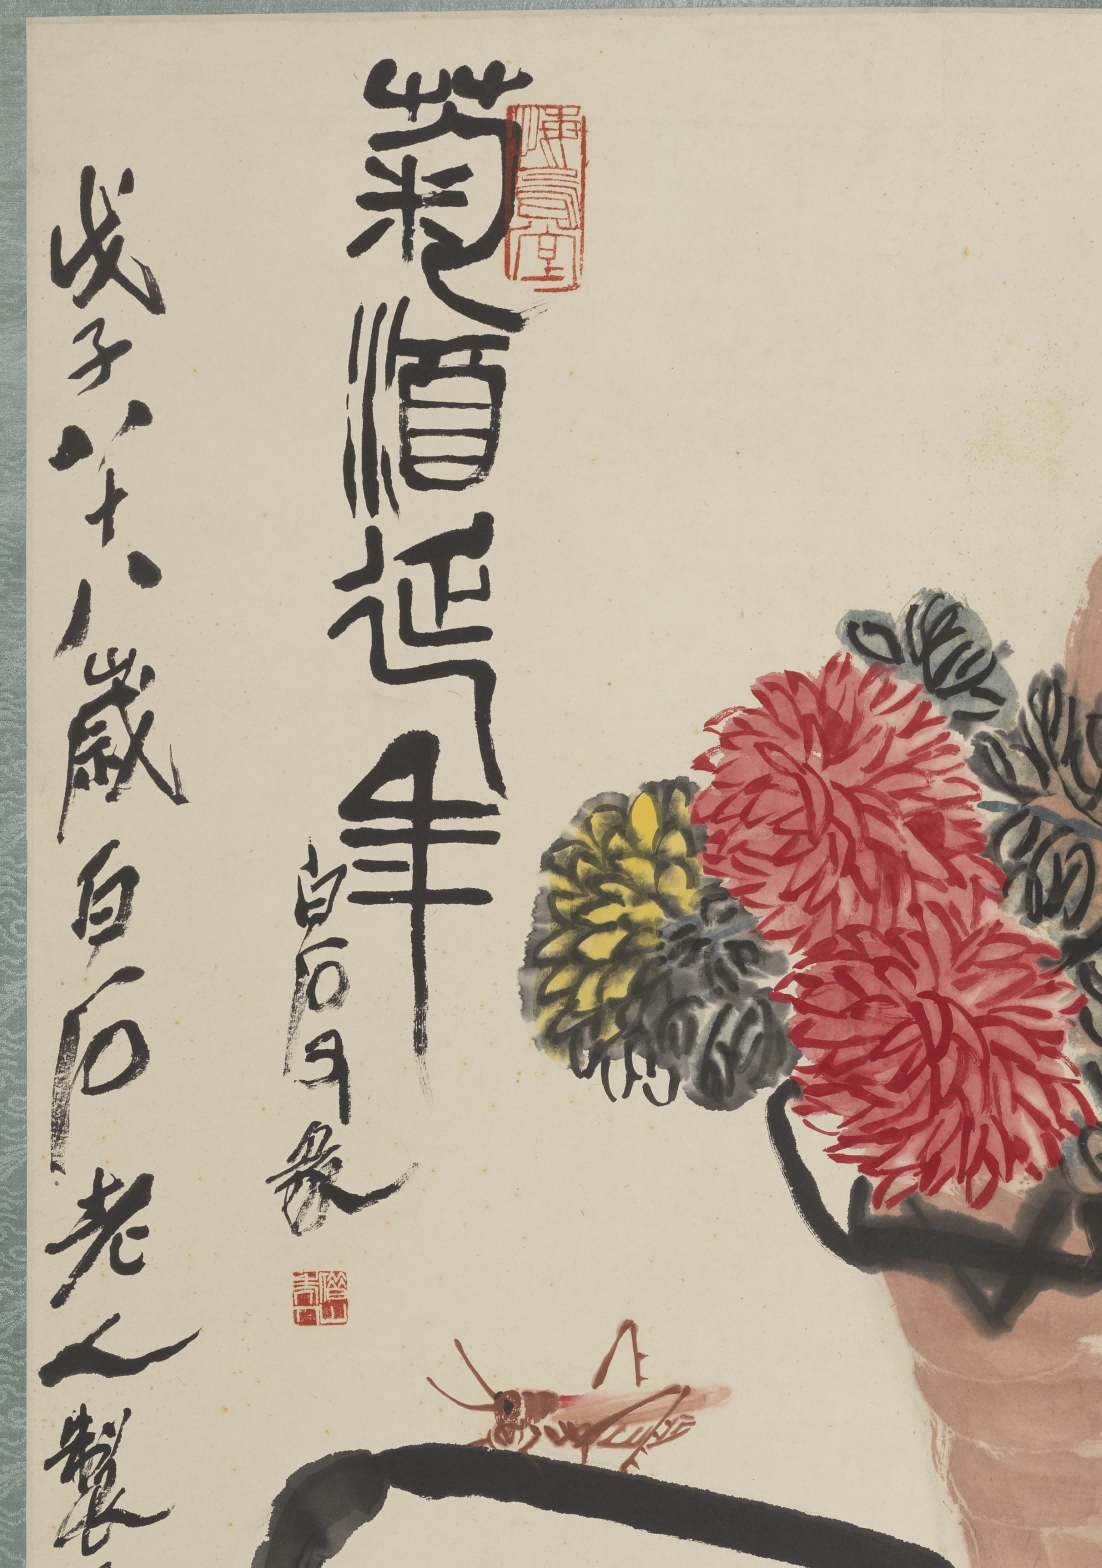 悔烏堂
菊酒延年
白石又篆
戊子八十八歲白石老人製